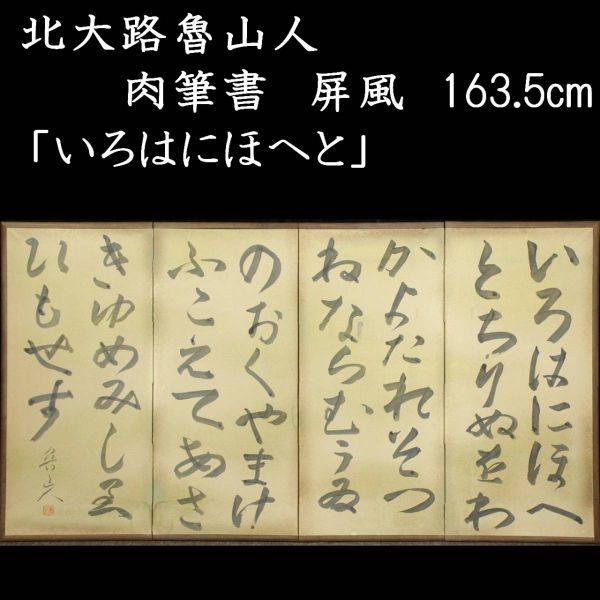 北大路魯山人
肉筆書 屏風 163.5cm
「いろはにほへと」
いろはにほへ
とちりぬをわ
かよたれそつ
ねならむうゐ
のおくやまけ
ふこえてあさ
きゆめみしゑ
ひもせす
魯山人